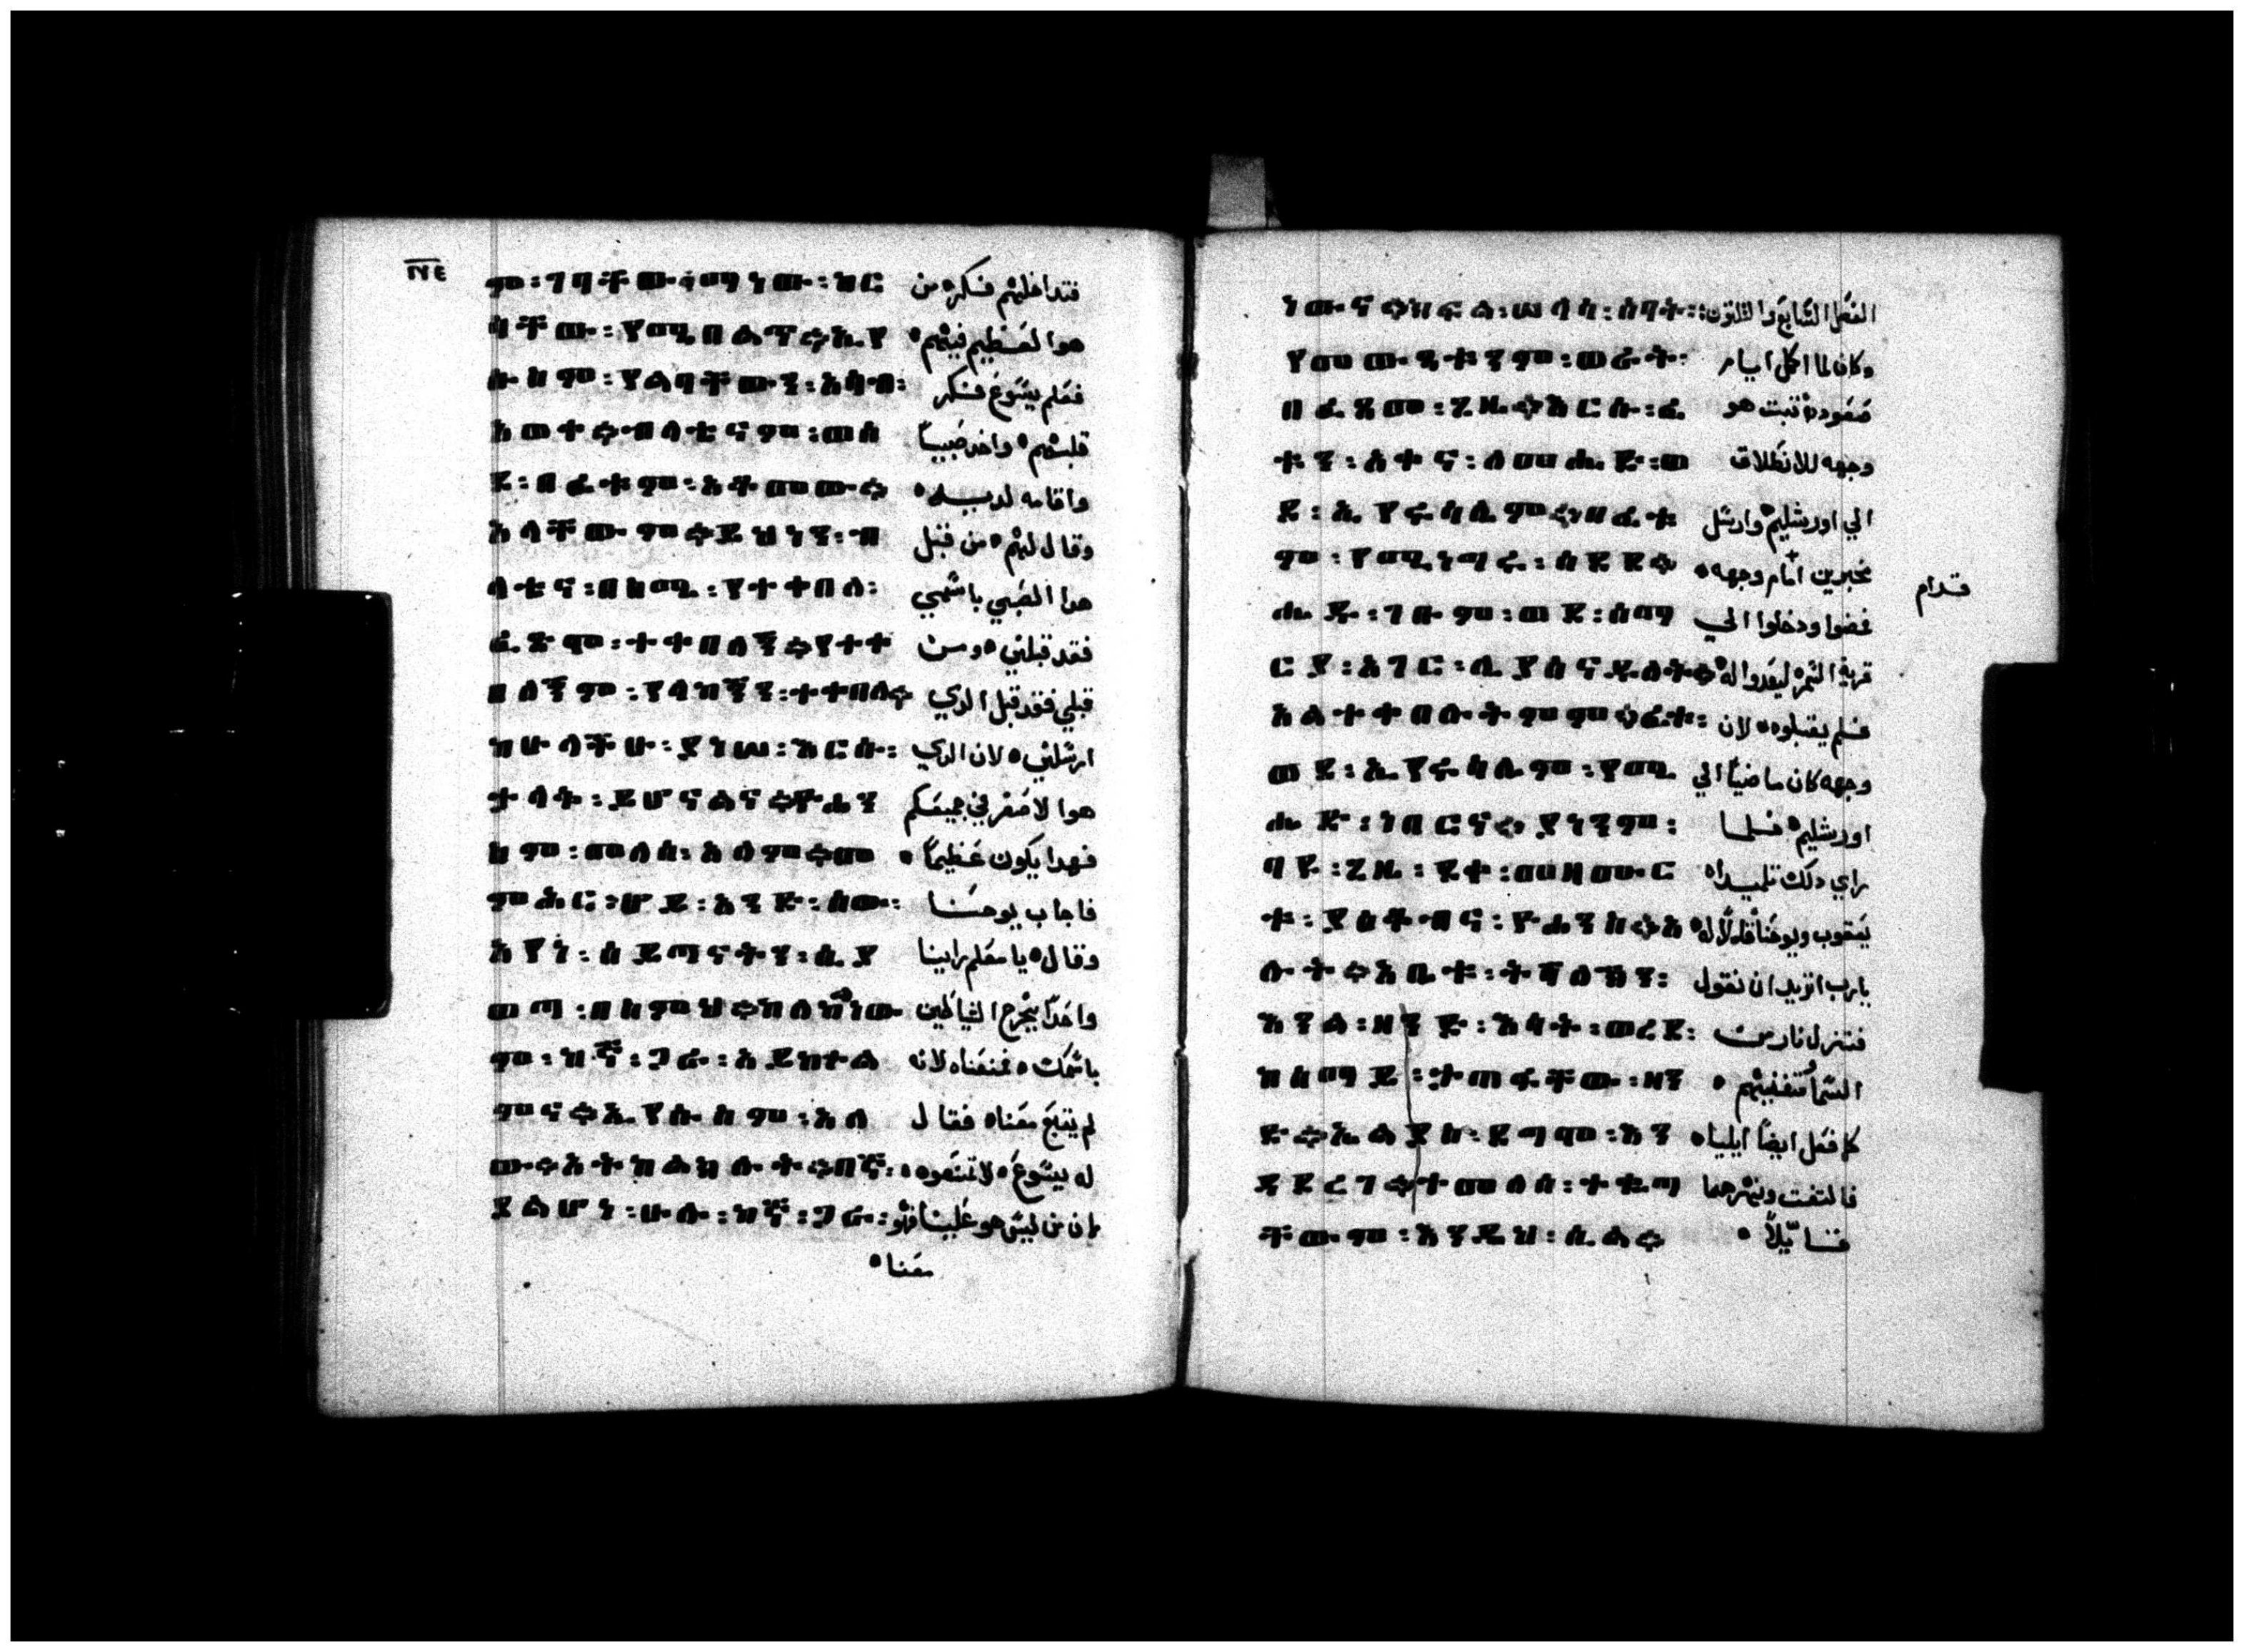 ም፡ገባቸው፡ማነው፡ከር فتداخلهم فكره من
ሳቸው፡የሚበልጥ።ኢየ هوا العظيم فيهم ه
ሱስም፡የልባቸውን፡አሳብ፡ فعلم يسوع فكر
አወቀ።ብላቴናም፡ወሰ قلبهم ه واخد صبياً
ደ፡በፊቱም፡አቆመው። واقامه لديه ه
አላቸውም።ይህነን፡በ وقال لهم ه من قبل
ላቴና፡በስሜ፡የተቀበለ፡ هدا الصبي باسمي
ፈጽም፡ተቀበለኝ።የተቀ فقد قبلني ه ومن
በለኝም፡የላከኝን፡ተቀበለ። قبلني فقد قبل الدي
ከሁላችሁ፡ያነሠ፡እርሱ፡ ارسلني ه لان الدي
ታላቅ፡ይሆናልና።ዮሐን هوا الاصغر في جميعكم
ስም፡መለሰ፡አለም።መ فهدا يكون عظيماً ه
ምሕር፡ሆይ፡አንድ፡ሰው፡ فاجاب يوحنا
አየነ፡ሰይጣናትን፡ሲያ وقال ه يا معلم راينا
ወጣ፡በስምህ።ከለከልነው واحداً يخرج الشياطين
ም፡ከኛ፡ጋራ፡አይከተል باسمك ه فمنعناه لانه
ምና።ኢየሱስም፡አለ لم يتبع معنا ه فقال
ው።አትከልክሉት።በኛ፡ له يسوع ه لا تمنعوه ه
ያልሆነ፡ሁሉ፡ከኛ፡ጋራ፡ لان من ليس هو علينا فهو
معنا ه
ነውና።ክፍል፡ሠላሳ፡ሰባት፡፡ الفصل السابع والتلتون
የመውጫቱንም፡ወራት፡ وكان لما اكمل ايام
በፈጸመ፡ጊዜ።እርሱ፡ፊ صعوده ثبت هو
ቱን፡አቀና፡ለመሔድ፡ወ وجهه للانطلاق
ደ፡ኢየሩሳሌም።በፊቱ الي اورشليم ه وارسل
ም፡የሚነግሩ፡ሰደደ። مخبرين امام وجهه ه
قدام
ሔዱ፡ገቡም፡ወደ፡ሰማ فمضوا ودخلوا الي
ርያ፡አገር፡ሊያሰናዱለት። قرية السمره ليعدوا له ه
አልተቀበሉትምም።ፊቱ፡ فلم يقبلوه ه لان
ወደ፡ኢየሩሳሌም፡የሚ وجهه كان ماضياً الي
ሔድ፡ነበርና።ያነንም፡ اورشليم ه فلما
ባዩ፡ጊዜ፡ደቀ፡መዛሙር راي دلك تلميداه
ቱ፡ያዕቆብና፡ዮሐንስ።አ يعقوب ويوحنا قالا له ه
ሉት።አቤቱ፡ትሻለኸን፡ يارب اتريد ان نقول
እንል፡ዘንድ፡እሳት፡ወርዶ፡ فتنزل نار من
ከሰማይ፡ታጠፋቸው፡ዘን السما فتفنيهم ه
ድ።ኤልያስ፡ደግም፡እን كما فعل ايضاً ايليا ه
ዳደረገ።ተመለሰ፡ተቈጣ فالتفت ونهرهما
ቸውም፡እንዲህ፡ሲል። قايلاً ه